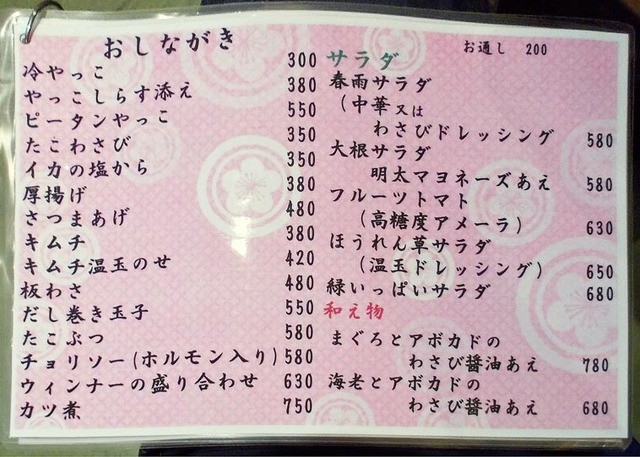 おしながき
冷やっこ 300
やっこしらす添え 380
ピータンやっこ 550
たこわさび 350
イカの塩から 350
厚揚げ 380
さつまあげ 480
キムチ 380
キムチ温玉のせ 420
板わさ 480
だし巻き玉子 550
たこぶつ 580
チョリソー(ホルモン入り) 580
ウィンナーの盛り合わせ 630
カツ煮 750
お通し 200
サラダ
春雨サラダ
(中華又は
わさびドレッシング 580
大根サラダ
明太マヨネーズあえ 580
フルーツトマト
(高糖度アメーラ) 630
ほうれん草サラダ
(温玉ドレッシング) 650
緑いっぱいサラダ 680
和え物
まぐろとアボカドの
わさび醤油あえ 780
海老とアボカドの
わさび醤油あえ 680